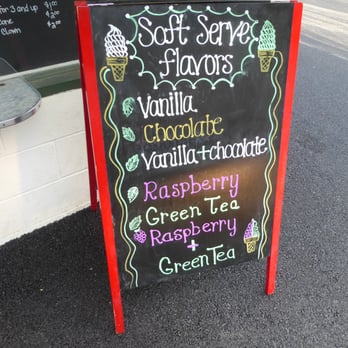 for 3 and up
$1.00
one $2.00
Shown $2.00
Soft Serve
flavors
Vanilla
Chocolate
Vanilla+chocolate
Raspberry
Green Tea
Raspberry
+
Green Tea